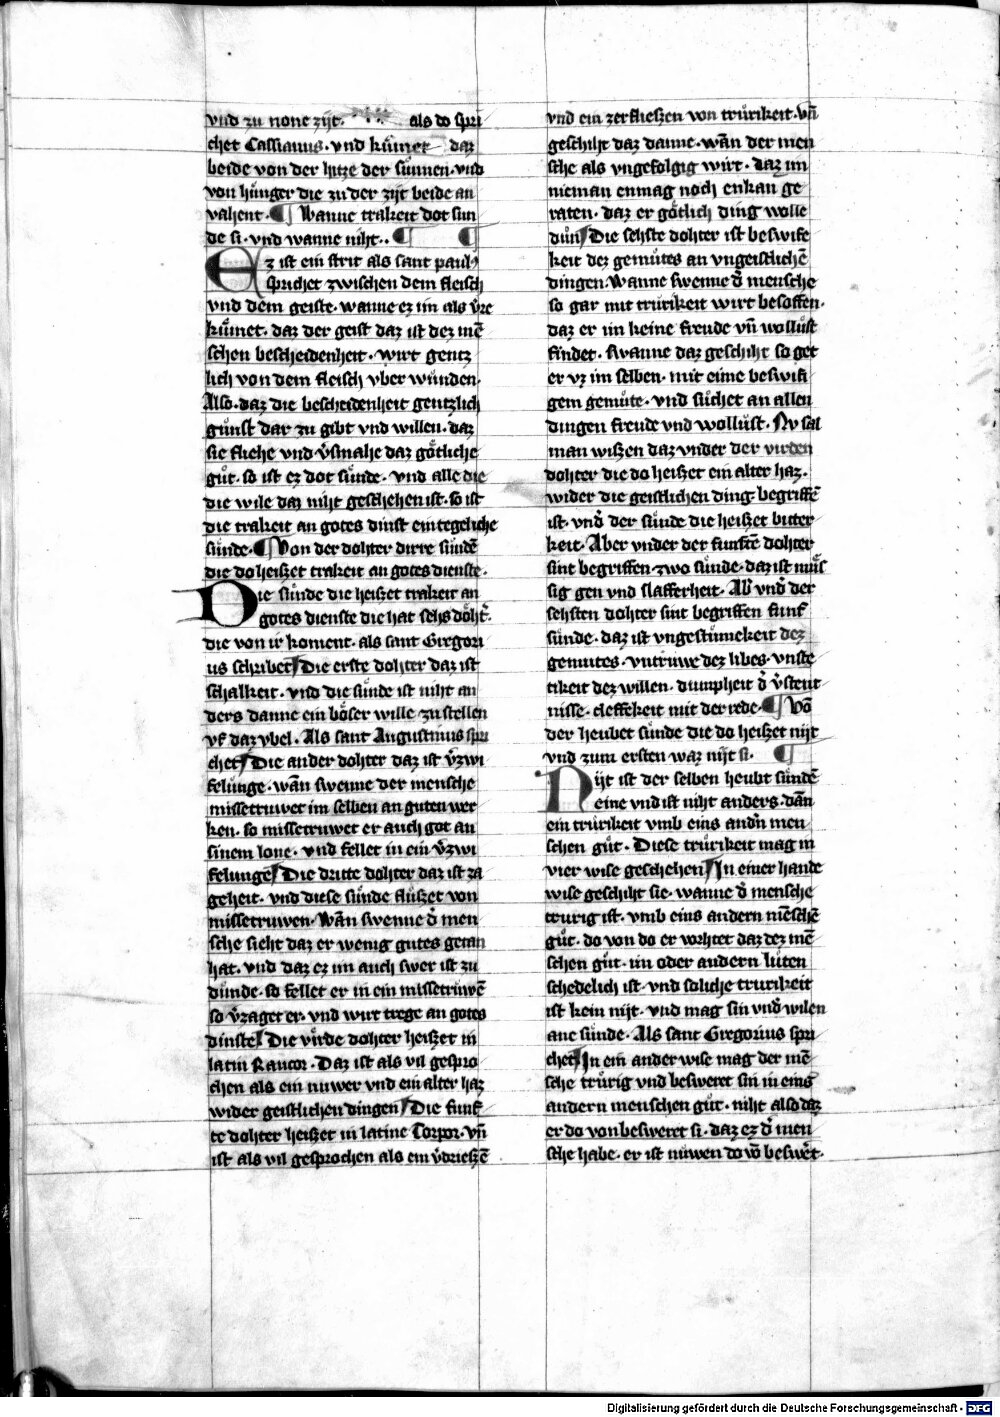 vnd zu none zijt. als do spri
chet Cassianus· vnd kuͤmet daz
beide von der hitze der suͤnnen· vnd
von huͤnger die zu der zijt beide an
vahent· ¶ Wanne trakeit dot sun
de si· vnd wanne niht·. ¶ ¶
Ez ist ein strit als sant pauls
sprichet zwischen dem fleisch
vnd dem geiste· wanne ez im als v̾re
kuͤmet· daz der geist daz ist dez mē
schen bescheidenheit· wirt gentz
lich von dem fleisch vber wuͤnden·
Also· daz die bescheidenheit gentzlich
guͤnst dar zu gibt vnd willen· daz
sie fliehe vnd v̾smahe daz goͤtliche
guͤt· so ist ez dot suͤnde· vnd alle die
die wile daz niht geschehen ist· so ist
die trakeit an gotes dinst ein tegeliche
suͤnde· ¶ Von der dohter dirre suͤndē
die do heiszet trakeit an gotes dienste·
Die suͤnde die heiszet trakeit an
gotes dienste die hat sehs doͤht̾·
die von ir koment· als sant Gregori
us schribet Die erste dohter daz ist
schalkeit· vnd die suͤnde ist niht an
ders danne ein boͤser wille· zu stellen
vf daz vbel· Als sant Augustinus spri
chet Die ander dohter daz ist v̾zwi
felunge· wān swenne der mensche
missetruwet im selben an guten wer
ken· so missetruwet er auch got an
sinem lone· vnd fellet in ein v̾zwi
felunge Die dritte dohter daz ist za
geheit· vnd diese suͤnde fluͤszet von
missetruwen· Wān swenne d̾ men
sche sieht daz er wenig gutes getan
hat· vnd daz ez im auch swer ist zu
duͤnde· so fellet er in ein missetruwē
so v̾zaget er· vnd wirt trege an gotes
dinste Die virde dohter heiszet in
latin Rancor· Daz ist als vil gespro
chen als ein nuwer vnd ein alter haz
wider geistlichen dingen Die funf
te dohter heiszet in latine Torpor· vn̄
ist als vil gesprochen als ein v̾drieszē
vnd ein zerflieszen von truͤrikeit· vn̄
geschiht daz danne· wān der men
sche als vngefolgig wirt· daz im
nieman enmag noch enkan ge
raten· daz er goͤtlich ding wolle
duͤn Die sehste dohter ist beswife
keit dez gemuͤtes an vngeistlichē
dingen· Wanne swenne d̾ mensche
so gar mit truͤrikeit wirt besoffen·
daz er im keine freude vn̄ wolluͤst
findet· Swanne daz geschiht so get
er vz im selben· mit eime beswifi
gem gemuͤte· vnd suͤchet an allen
dingen freude vnd wolluͤst· Nv sal
man wiszen daz vnder der virden
dohter die do heiszet ein alter haz·
wider die geistlichen ding begriffē
ist· vnd̾ der suͤnde die heiszet bitter
keit· Aber vnder der funftē dohter
sint begriffen zwo suͤnde· daz ist muͤs
sig gen vnd slafferheit· Ab̾ vnd̾ der
sehsten dohter sint begriffen funf
suͤnde· daz ist vngestuͤmekeit dez
gemutes· vntruwe dez libes· vnste
tikeit dez willen· dumpheit d̾ v̾stent
nisse· cleffekeit mit der rede· ¶ Vō
der heubet suͤnde die do heiszet nijt
vnd zum ersten waz nijt si· ¶
Nijt ist der selben heubt suͤndē
eine vnd ist niht anders· dān
ein truͤrikeit vmb eins andn̄ men
schen guͤt· Diese truͤrikeit mag in
vier wise geschehen In einer hande
wise geschiht sie· wanne d̾ mensche
trurig ist· vmb eins andern mēschē
guͤt· do von do er vorhtet daz dez mē
schen guͤt· im oder andern luͤten
schedelich ist· vnd soliche trurikeit
ist kein nijt· vnd mag sin vnd̾ wilen
ane suͤnde· Als sant Gregorius spri
chet In ein ander wise mag der mē
sche truͤrig vnd besweret sin in eins
andern menschen guͤt· niht also daz
er do von besweret si· daz ez d̾ men
sche habe· er ist nuwen do vō beswēt·